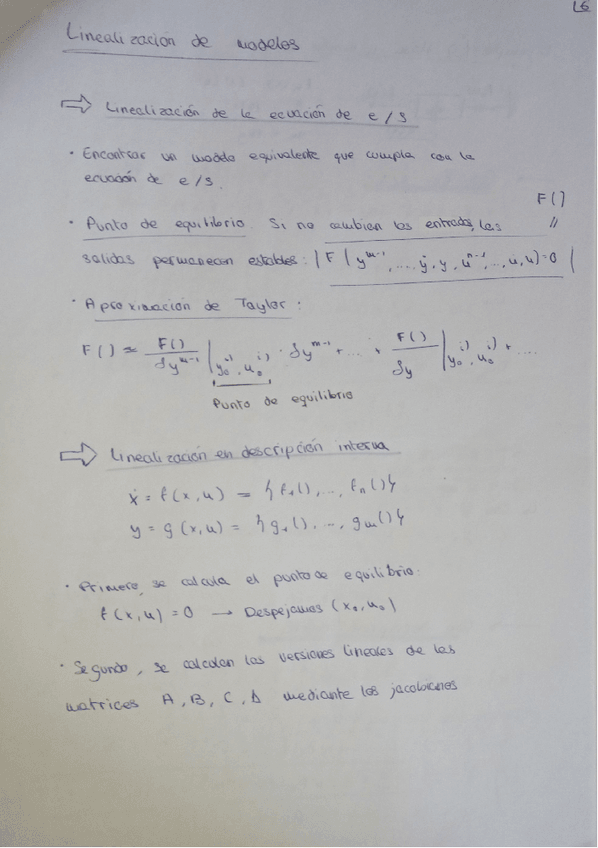 L6
Linealización de modelos
⇒ Linealización de la ecuación de e/s
· Encontrar un modelo equivalente que cumpla con la
ecuación de e/s.
F()
· Punto de equilibrio. Si no cambian las entradas, las //
salidas permanecen estables: | F(y^{m-1}, ... ẏ, y, u^{n-1}, ..., u̇, u)=0 |
· Aproximación de Taylor:
F() ≈ F()/δy^{m-1} |y₀^{i)}, u₀^{i)} · δy^{m-1} + ... + F()/δy |y₀^{i)}, u₀^{i)} + ....
Punto de equilibrio
⇒ Linealización en descripción interna
ẋ = f(x,u) = {f₁(), ..., fₙ()}
y = g(x,u) = {g₁(), ..., gₘ()}
· Primero, se calcula el punto de equilibrio:
f(x,u)=0 → Despejamos (x₀,u₀)
· Segundo, se calculan las versiones lineales de las
matrices A, B, C, D mediante los jacobianos